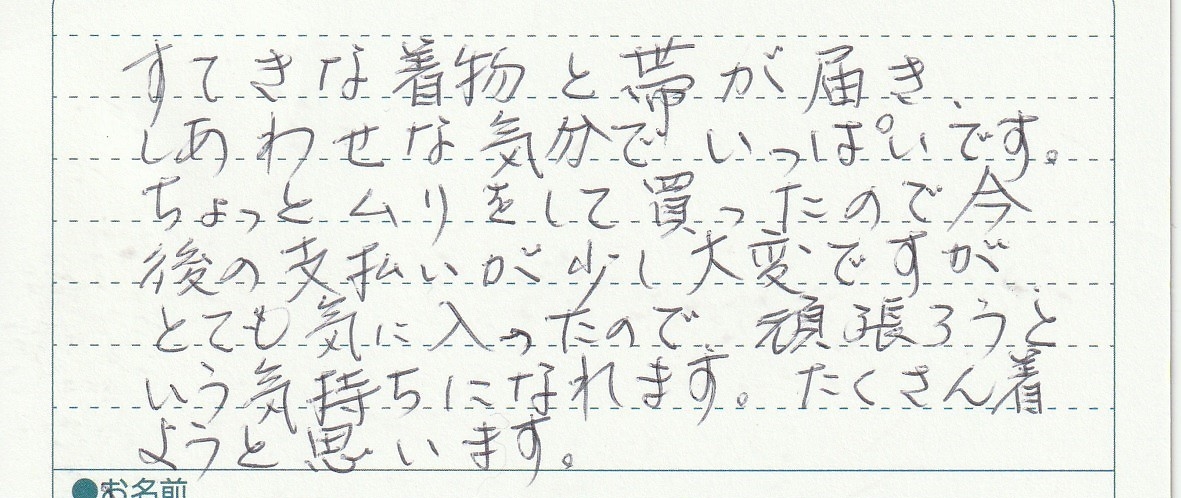 すてきな着物と帯が届き、
しあわせな気分でいっぱいです。
ちょっとムリをして買ったので今
後の支払いが少し大変ですが、
とても気に入ったので、頑張ろうと
いう気持ちになれます。たくさん着
ようと思います。
●お名前